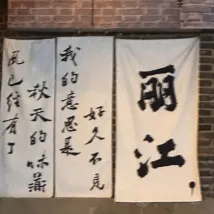 风已经有了
秋天的味道
我的意思是
好久不见
丽江